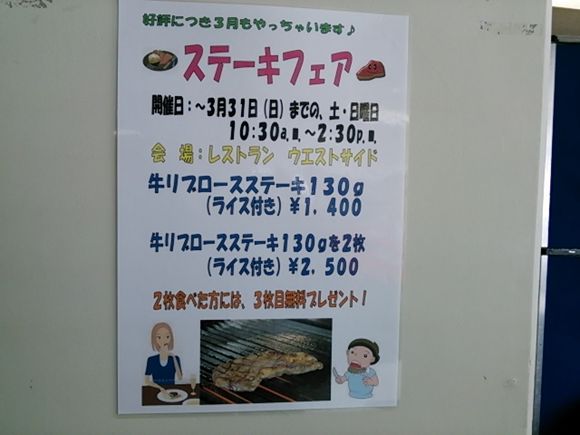 好評につき3月もやっちゃいます♪
ステーキフェア
開催日：～3月31日（日）までの、土・日曜日
10:30a.m.～2:30p.m.
会 場：レストラン ウエストサイド
牛リブロースステーキ130g
（ライス付き）￥1,400
牛リブロースステーキ130gを2枚
（ライス付き）￥2,500
2枚食べた方には、3枚目無料プレゼント！